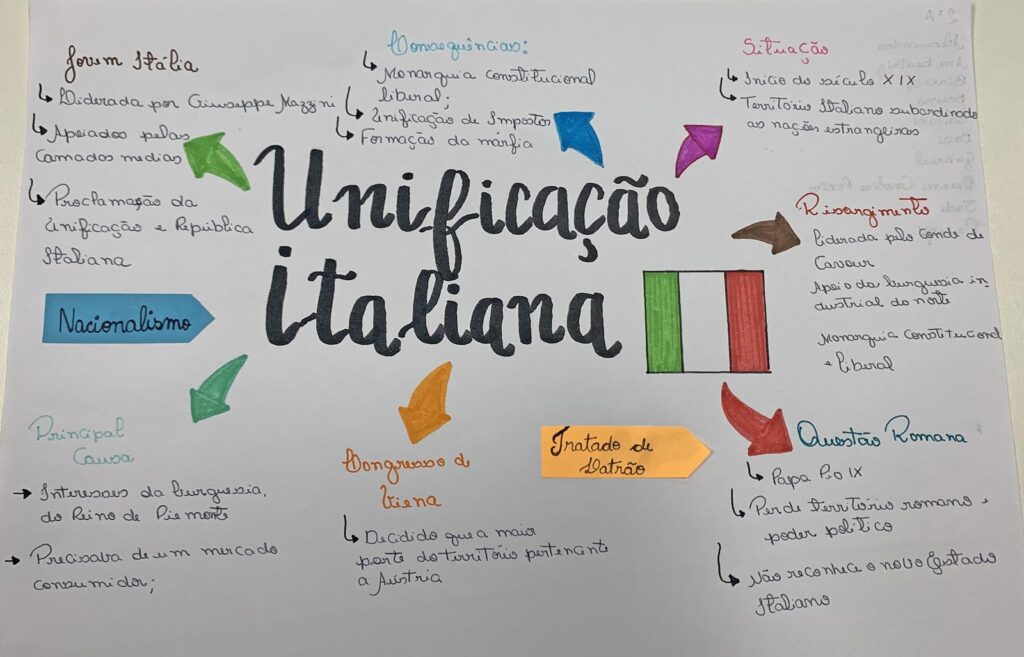 Unificação
italiana
Jovem Itália
Liderada por Giuseppe Mazzini
Apoiados pelas
Camadas medias
Proclamação da
Unificação e República
Italiana
Consequências:
Monarquia constitucional
liberal;
Unificação de Impostos
Formação da máfia
Situação
Início do século XIX
Território Italiano subordinado
as nações estrangeiras
Risorgimento
Liderada pelo Conde de
Cavour
Apoio da burguesia in
dustrial do norte
Monarquia Constitucional
e liberal
Nacionalismo
Principal
Causa
Interesses da burguesia,
do Reino de Piemonte
Precisava de um mercado
consumidor;
Congresso de
Viena
Decidido que a maior
parte do território pertencente
a Áustria
Tratado de
Latrão
Questão Romana
Papa Pio IX
Perde território romano e
poder político
Não reconhece o novo Estado
Italiano